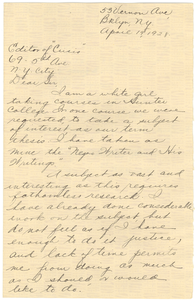 33 Vernon Ave
Bklyn, N.Y.
April 1, 1931
Editor of "Crisis"
69 - 5th Ave
N.Y. City
Dear Sir:
I am a white girl
taking courses in Hunter
College. In one course we were
requested to take a subject
of interest as our term
thesis. I have taken as
mine the "Negro Writer and His
Writings".
A subject as vast and
interesting as this, requires
fathomless research. I
have already done considerable
work on the subject, but
do not feel as if I have
enough to do it justice,
and lack of time permits
me from doing as much
as I should, or would
like to do.